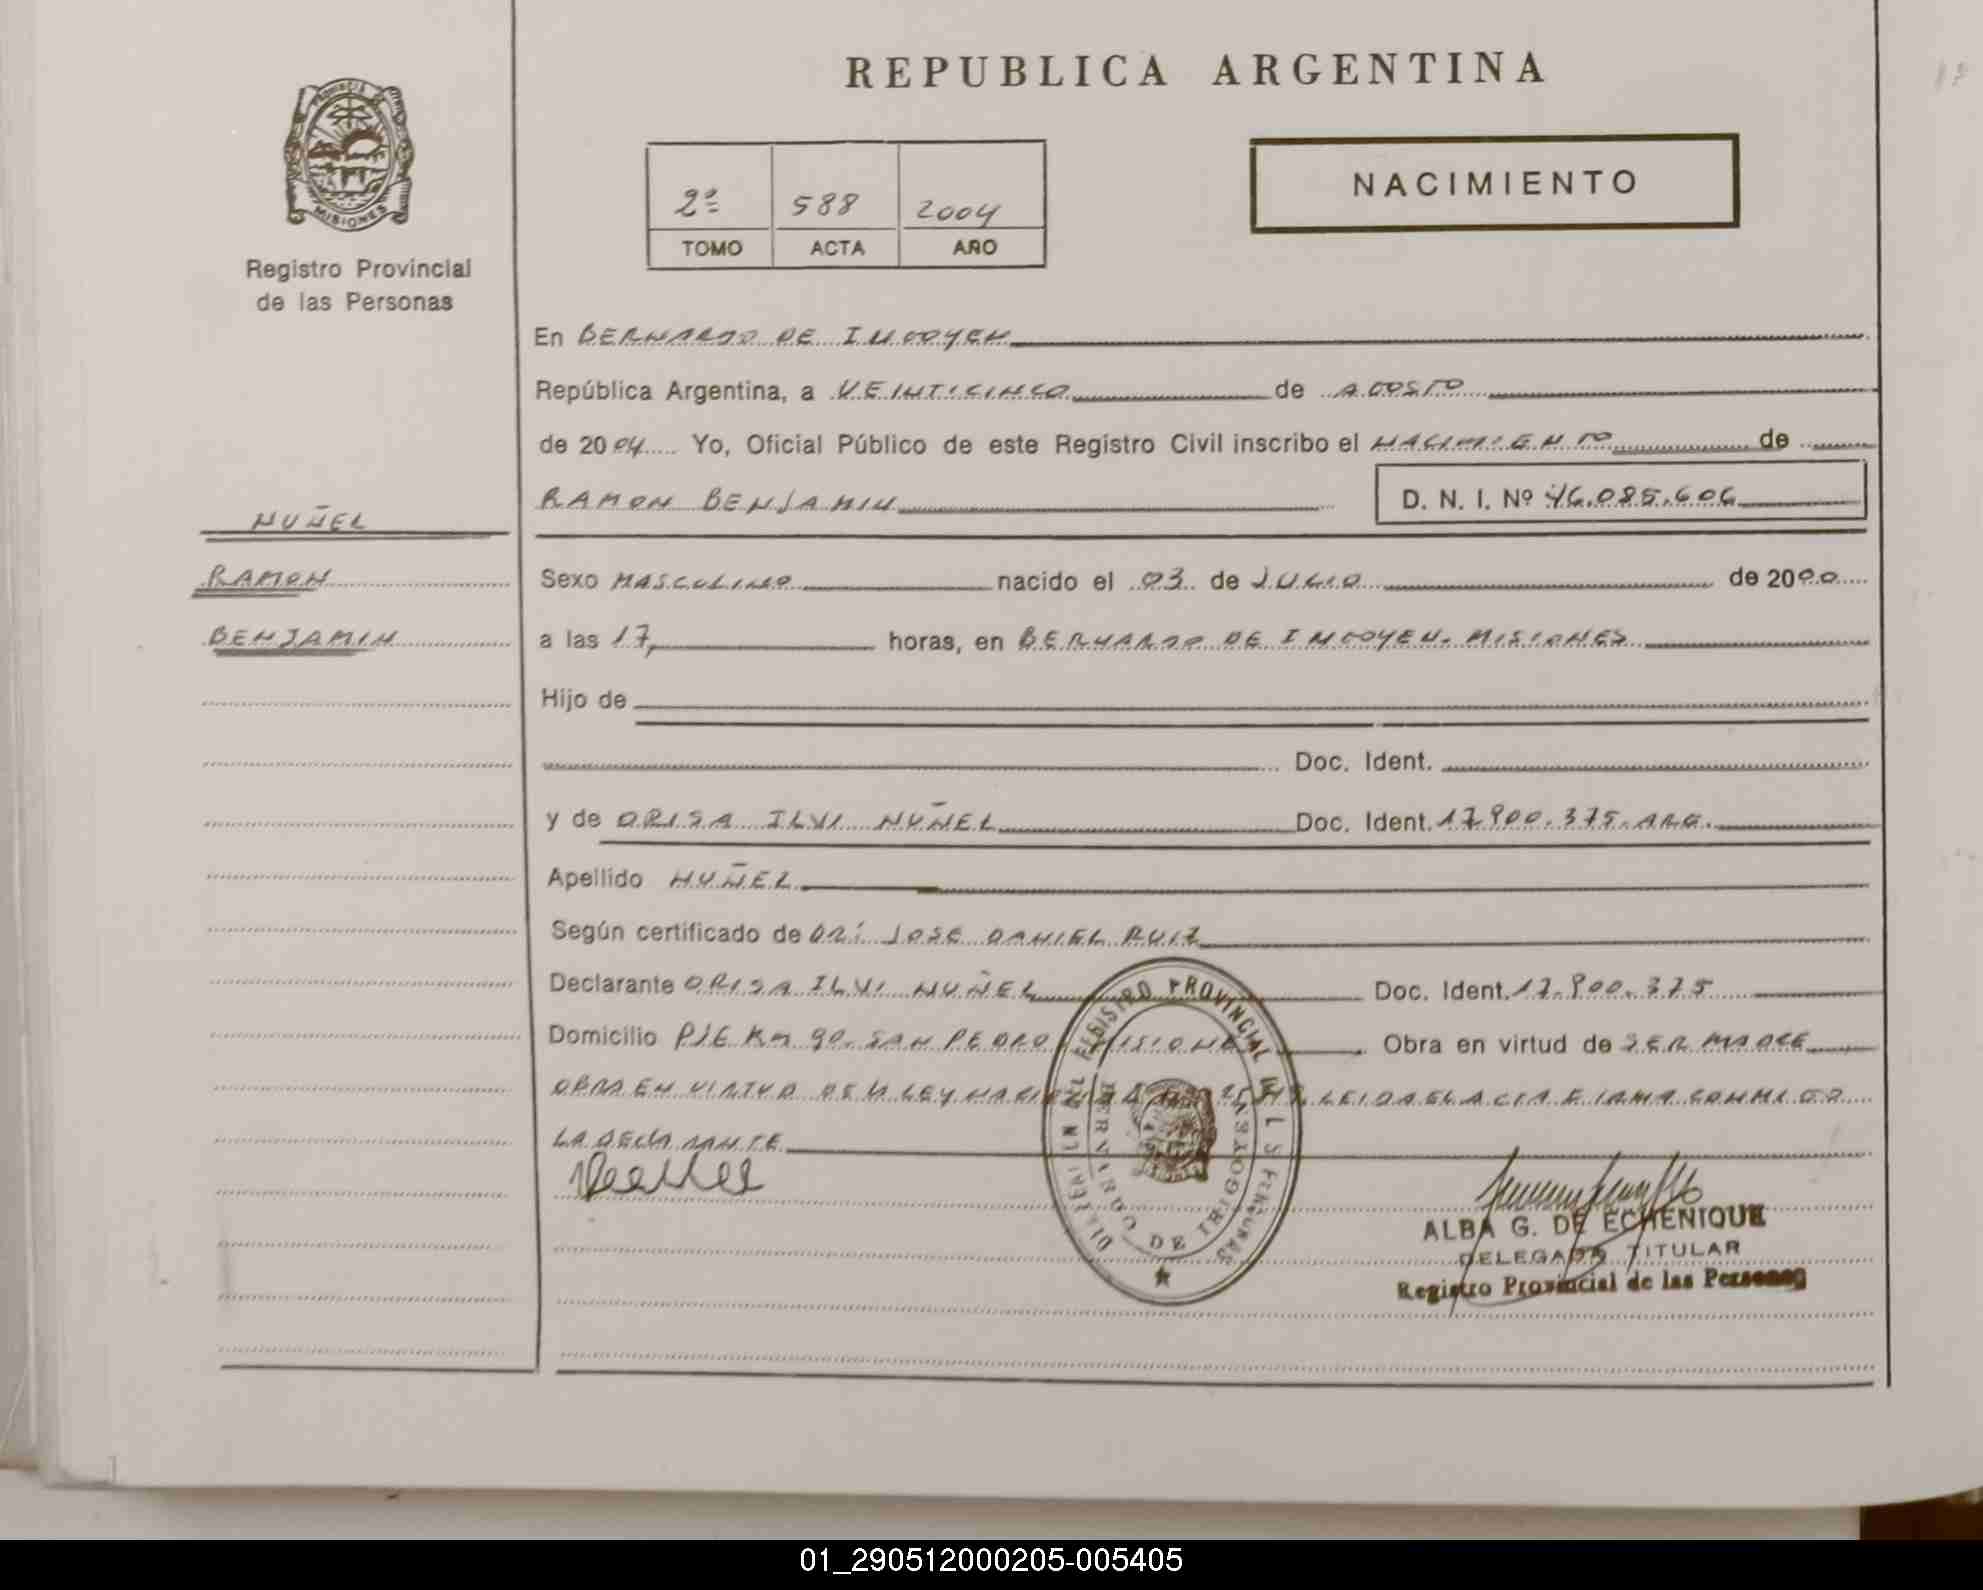 REPUBLICA ARGENTINA
PROVINCIA DE
MISIONES
Registro Provincial
de las Personas
2ª 588 2004
TOMO ACTA AÑO
NACIMIENTO
En BERNARDO DE IRIGOYEN
República Argentina, a VEINTICINCO de AGOSTO
de 2004 Yo, Oficial Público de este Registro Civil inscribo el NACIMIENTO de
RAMON BENJAMIN D. N. I. Nº 46.085.606
NUÑEL
RAMON
BENJAMIN
Sexo MASCULINO nacido el 03 de JULIO de 2000
a las 17, horas, en BERNARDO DE IRIGOYEN. MISIONES
Hijo de
Doc. Ident.
y de ORISA ILVI NUÑEL Doc. Ident. 17.900.375. ARG.
Apellido NUÑEL
Según certificado de DR: JOSE DANIEL RUIZ
Declarante ORISA ILVI NUÑEL Doc. Ident. 17.900.375
Domicilio PJE Km 90. SAN PEDRO MISIONES Obra en virtud de SER MADRE
OBRA EN VIRTUD DE LA LEY NACIONAL LEIDA EL ACTA FIRMA CONMIGO
LA DECLARANTE
REGISTRO PROVINCIAL DE LAS PERSONAS
BERNARDO DE IRIGOYEN
ALBA G. DE ECHENIQUE
DELEGADA TITULAR
Registro Provincial de las Personas
01_290512000205-005405